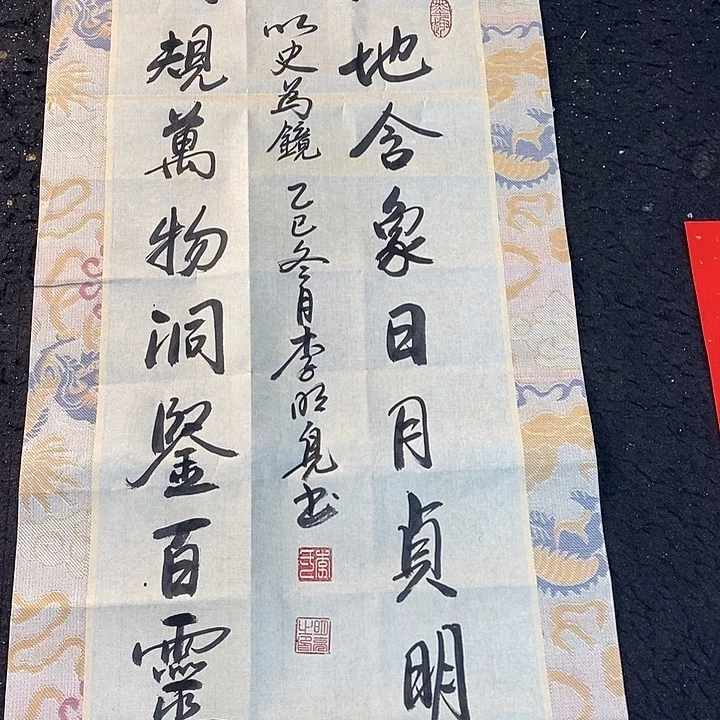 地含象日月貞明
規萬物洞鑒百靈
以史為鏡
乙巳冬月李明亮書